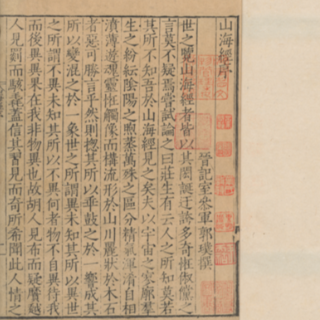 山海經序
晉記室參軍郭璞撰
世之覽山海經者皆以其閎誕迂誇多奇怪俶儻之
言莫不疑焉嘗試論之曰莊生有云人之所知莫若
其所不知吾於山海經見之矣夫以宇宙之寥廓羣
生之紛紜陰陽之煦蒸萬殊之區分精氣渾淆自相
濆薄遊魂靈怪觸像而構流形於山川麗狀於木石
者惡可勝言乎然則總其所以乖鼓之於一響成其
所以變混之於一象世之所謂異未知其所以異世
之所謂不異未知其所以不異何者物不自異待我
而後異異果在我非物異也故胡人見布而疑黂越
人見罽而駭毳蓋信其習見而奇所希聞此人情之